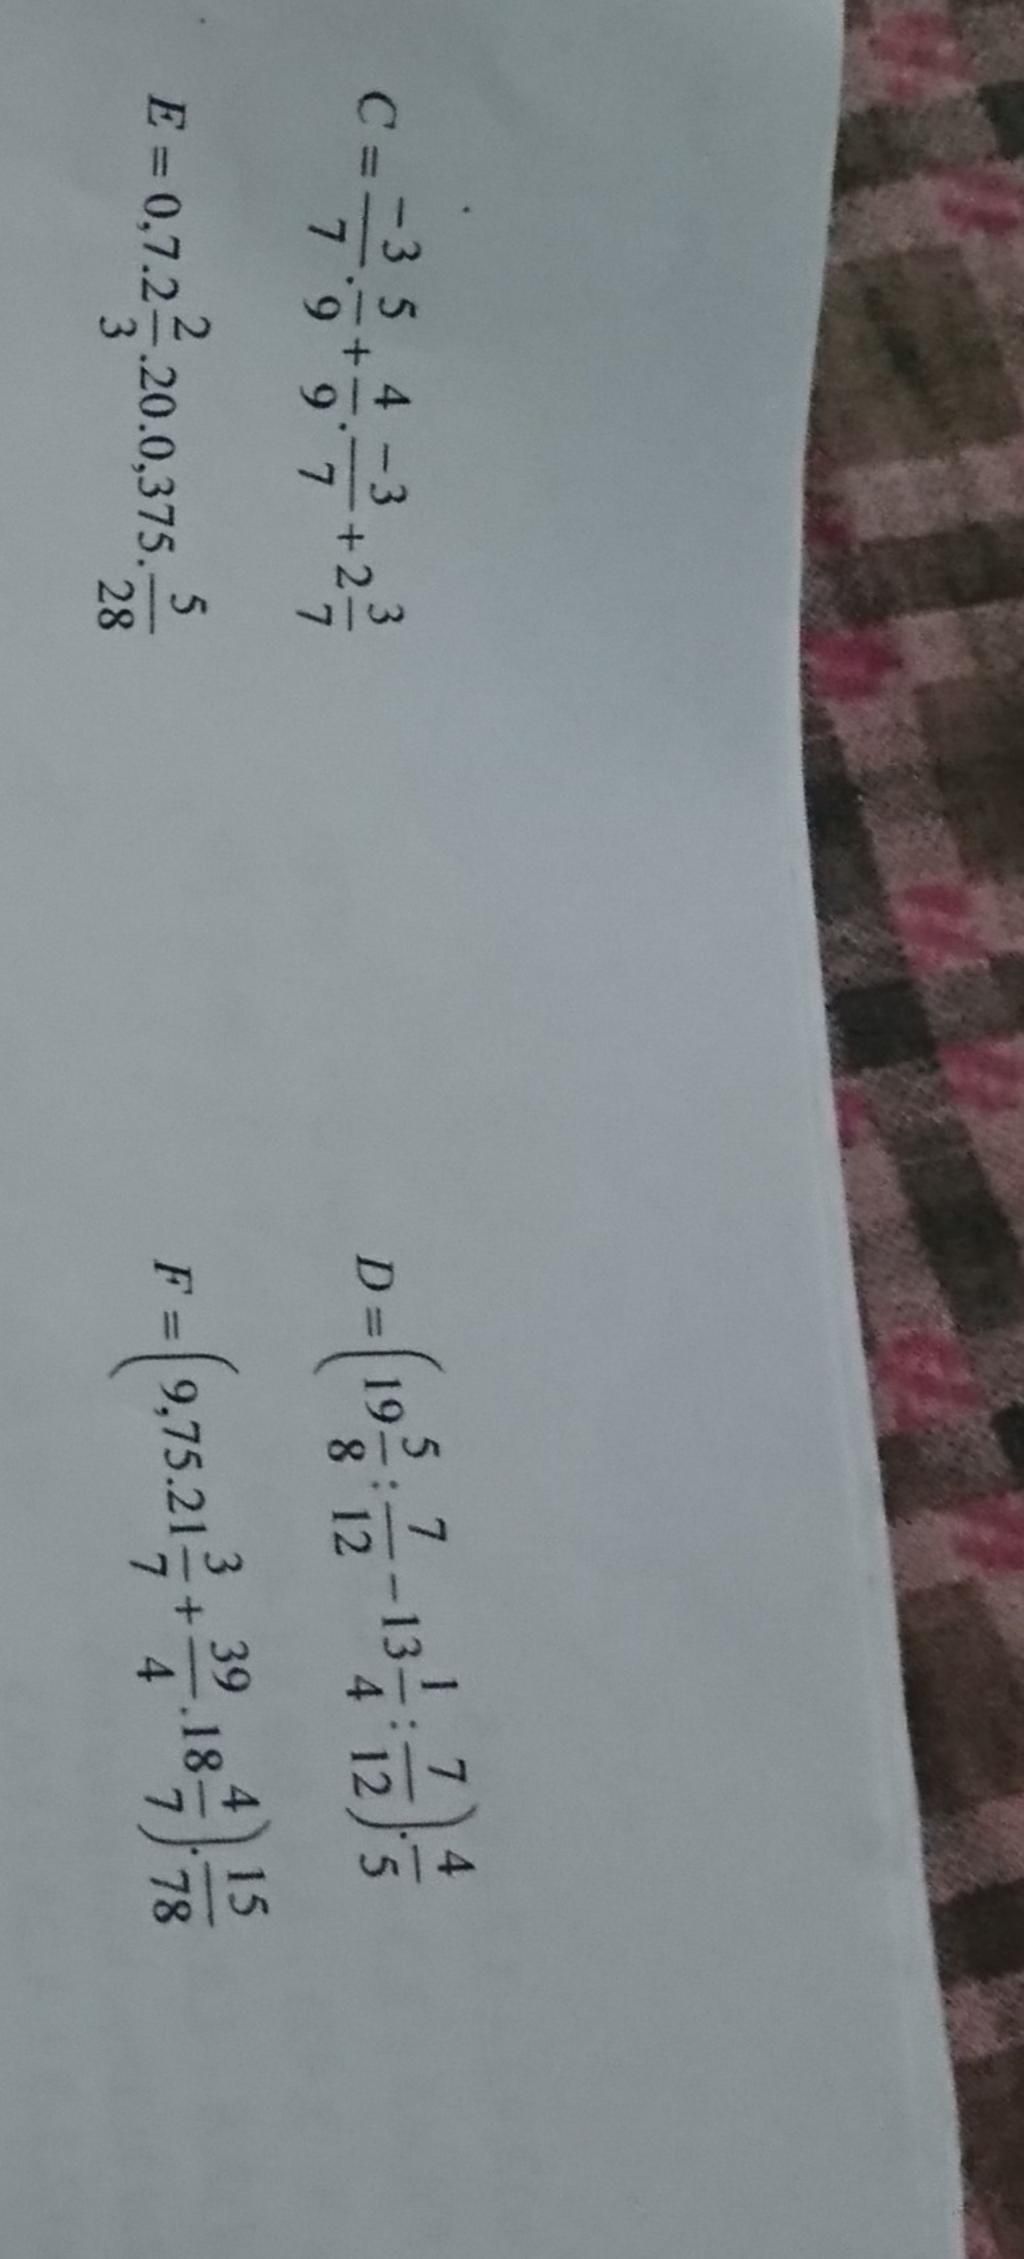 C = \frac{-3}{7}.\frac{5}{9}+\frac{4}{9}.\frac{-3}{7}+2\frac{3}{7}
D = \left(19\frac{5}{8}:\frac{7}{12}-13\frac{1}{4}:\frac{7}{12}\right).\frac{4}{5}
E = 0,7.2\frac{2}{3}.20.0,375.\frac{5}{28}
F = \left(9,75.21\frac{3}{7}+\frac{39}{4}.18\frac{4}{7}\right).\frac{15}{78}